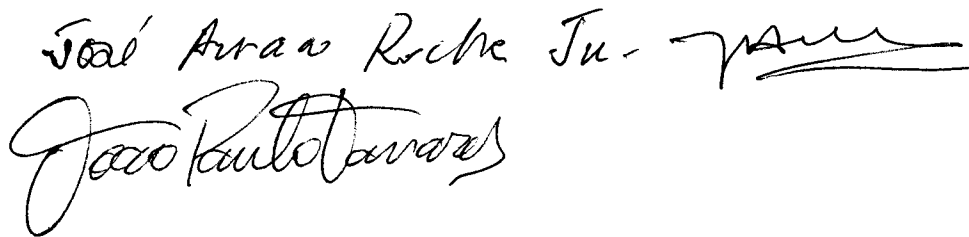 José Airan Rocha Jr.
João Paulo Tavares